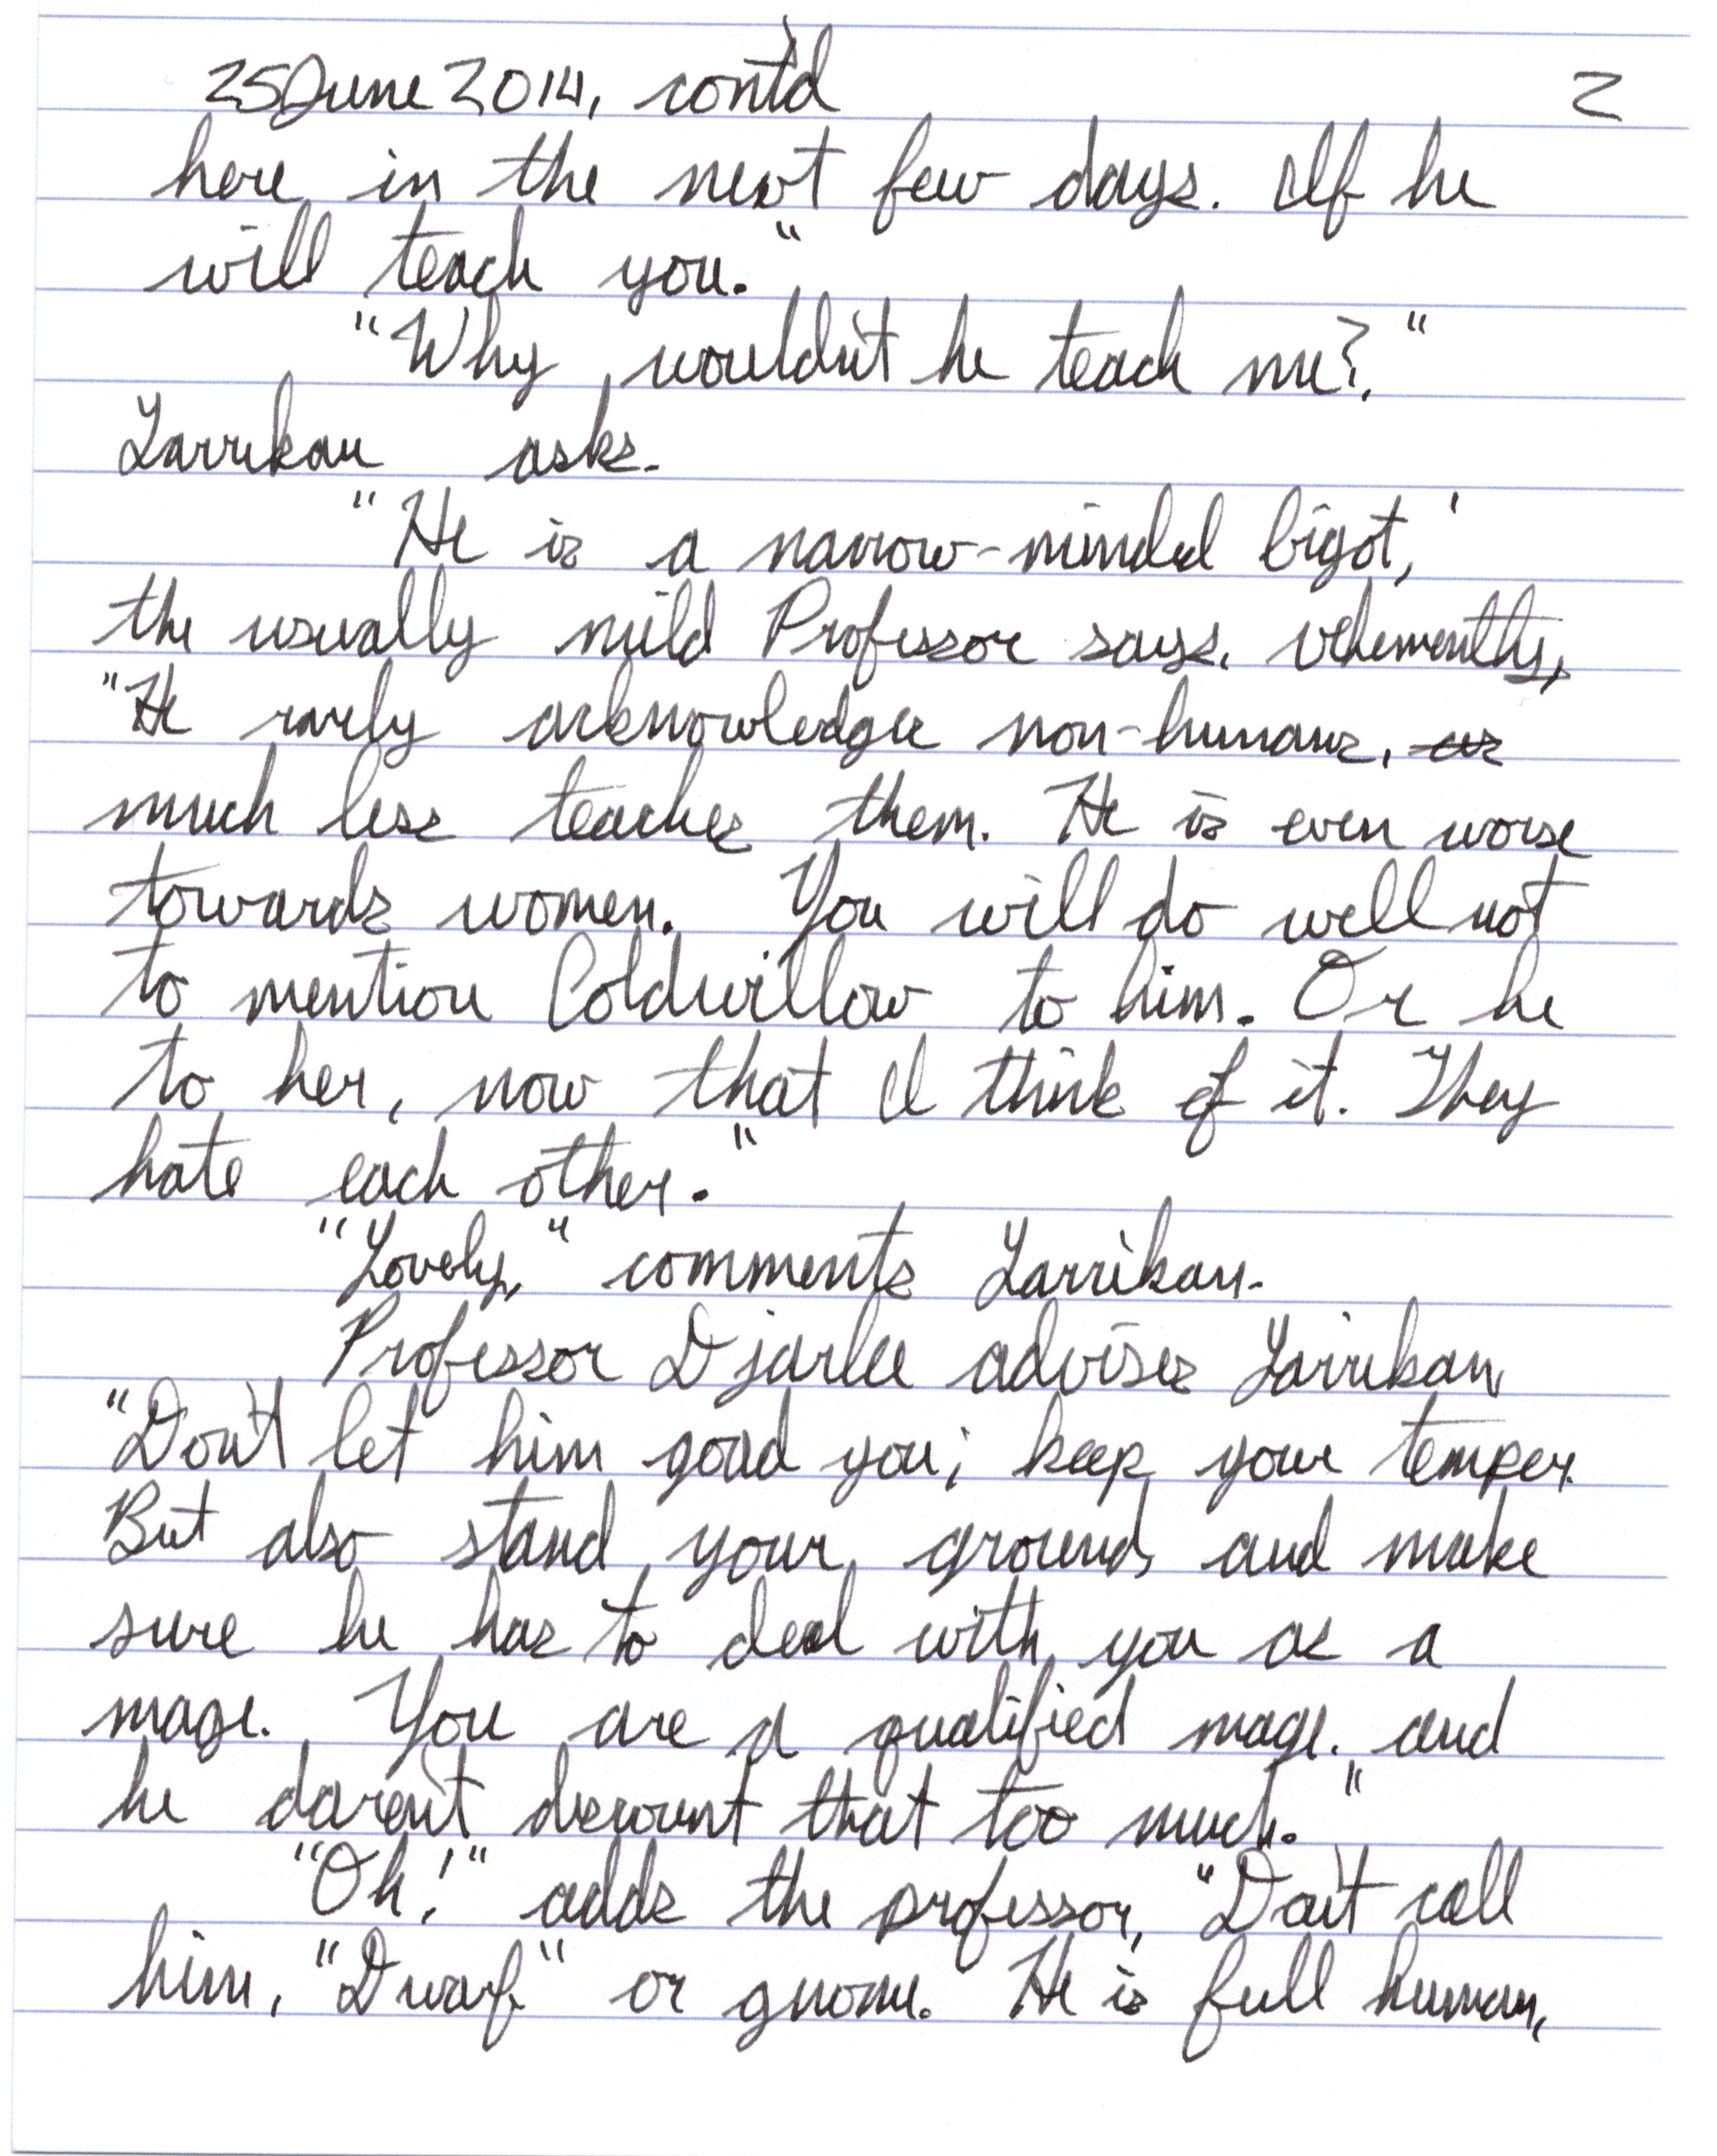 25 June 2014, cont'd 2
here in the next few days. If he
will teach you."
"Why wouldn't he teach me?,"
Larrikan asks.
"He is a narrow-minded bigot,'
the usually mild Professor says. vehemently,
"He rarely acknowledges non-humans,
much less teaches them. He is even worse
towards women. You will do well not
to mention Coldwillow to him. Or he
to her, now that I think of it. They
hate each other."
"Lovely," comments Larrikan.
Professor Djarlee advises Larrikan,
"Don't let him goad you; keep your temper.
But also stand your ground, and make
sure he has to deal with you as a
mage. You are a qualified mage. and
he daren't discount that too much."
"Oh!" adds the professor, "Don't call
him, "Dwarf" or gnome. He is full human,